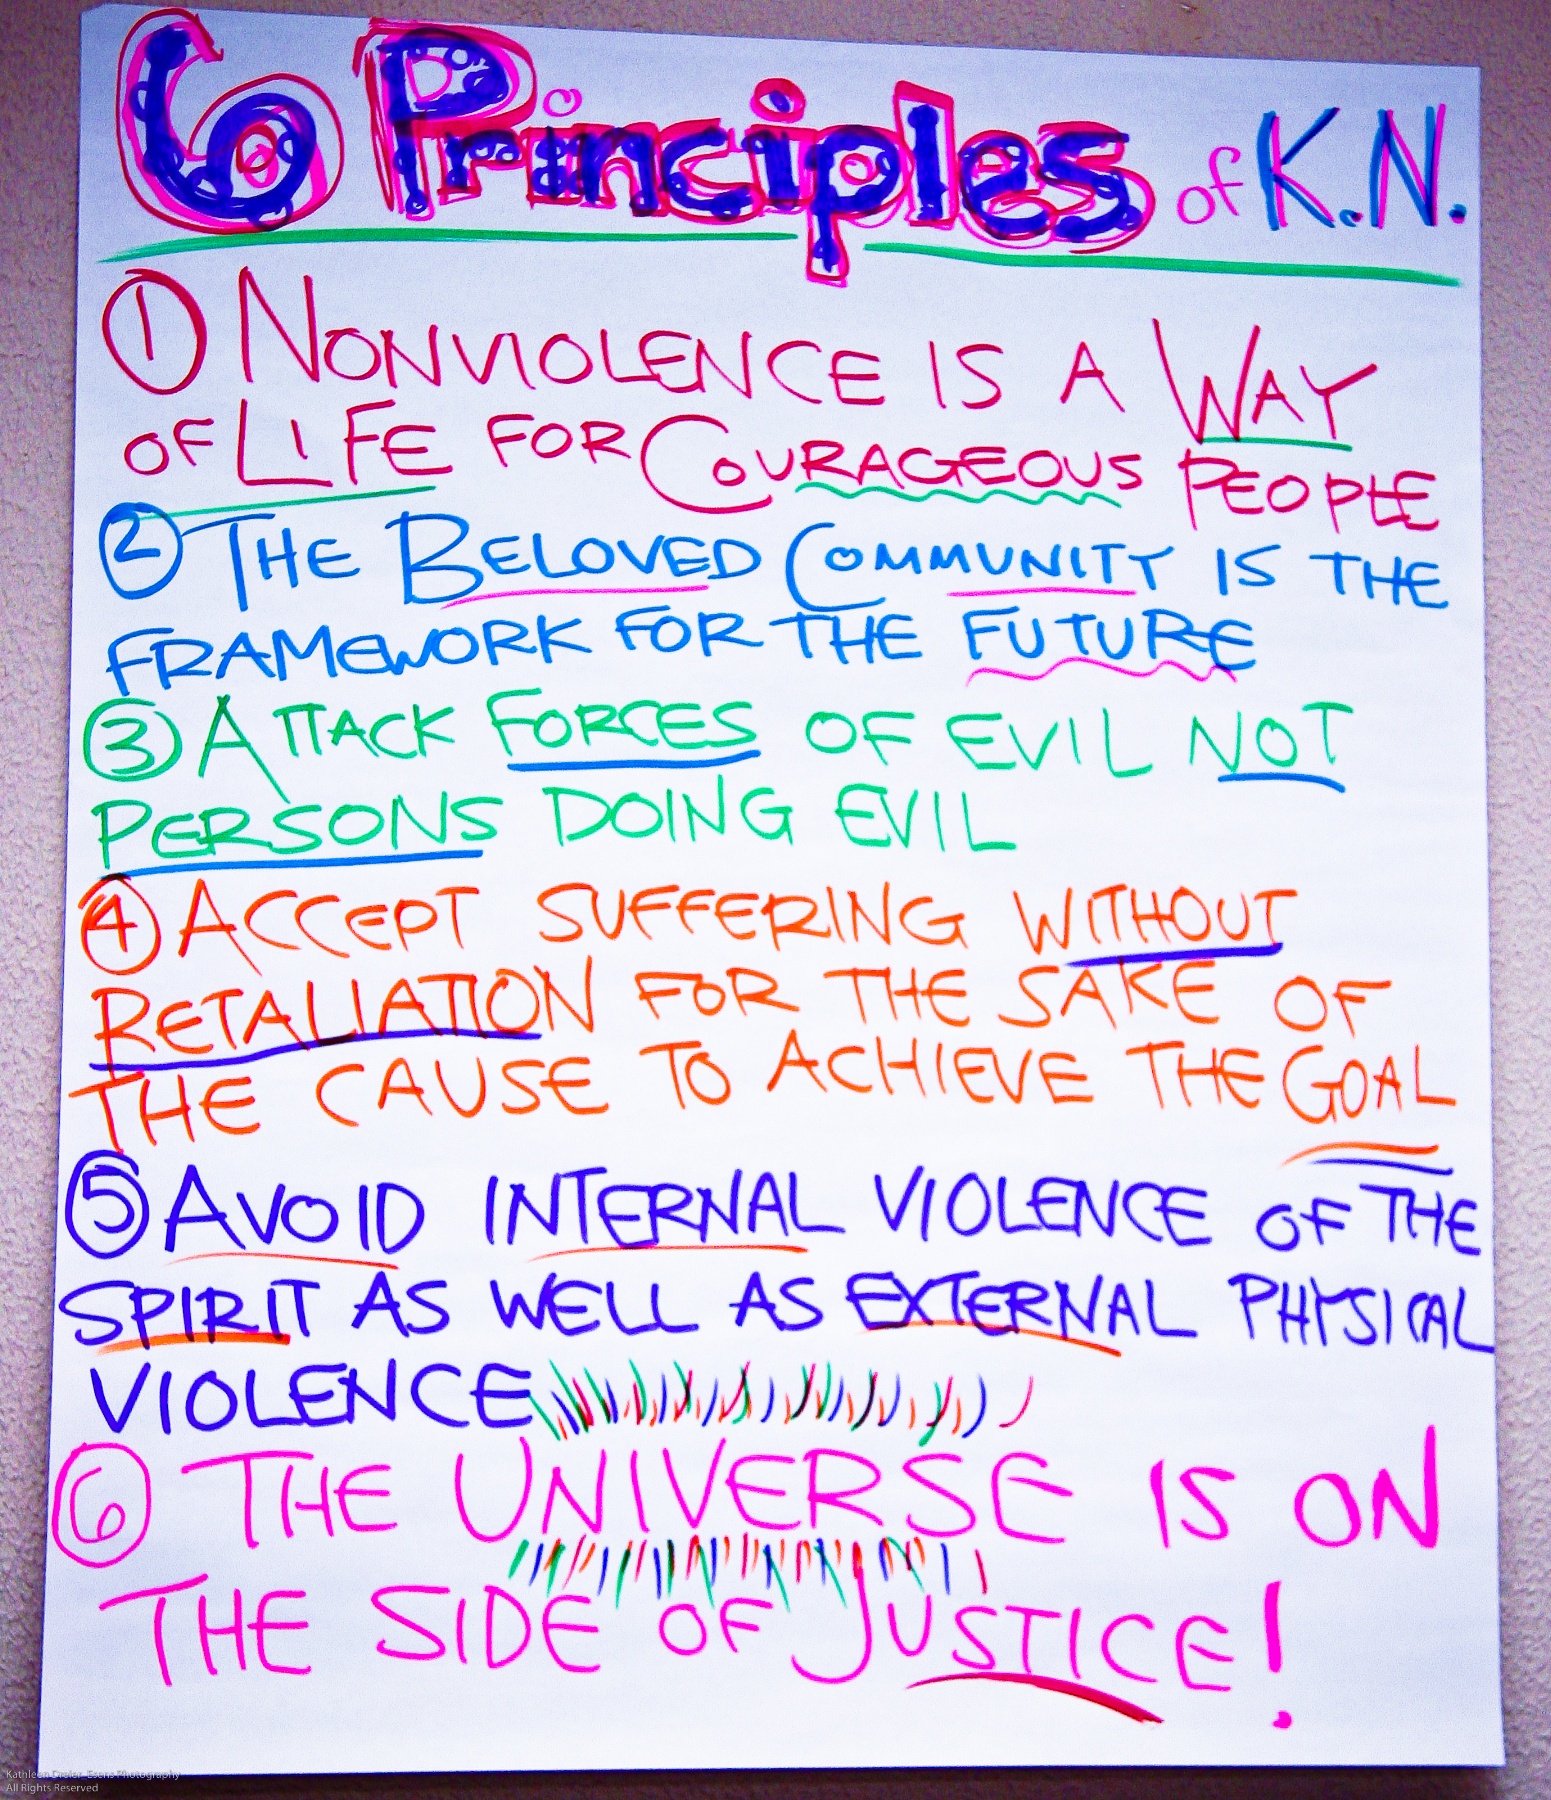 6 Principles of K.N.
① NONVIOLENCE IS A WAY
OF LIFE FOR COURAGEOUS PEOPLE
② THE BELOVED COMMUNITY IS THE
FRAMEWORK FOR THE FUTURE
③ ATTACK FORCES OF EVIL NOT
PERSONS DOING EVIL
④ ACCEPT SUFFERING WITHOUT
RETALIATION FOR THE SAKE OF
THE CAUSE TO ACHIEVE THE GOAL
⑤ AVOID INTERNAL VIOLENCE OF THE
SPIRIT AS WELL AS EXTERNAL PHYSICAL
VIOLENCE
⑥ THE UNIVERSE IS ON
THE SIDE OF JUSTICE!
Kathleen Photography
All Rights Reserved